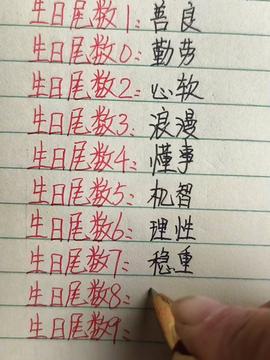 生日尾数1：善良
生日尾数0：勤劳
生日尾数2：心软
生日尾数3：浪漫
生日尾数4：懂事
生日尾数5：机智
生日尾数6：理性
生日尾数7：稳重
生日尾数8：
生日尾数9：